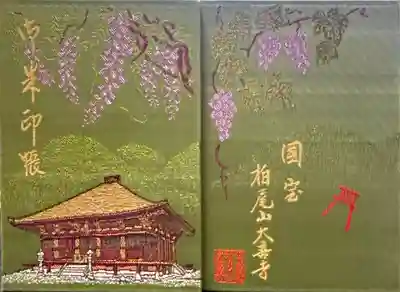 御朱印帳
国宝
柏尾山大善寺